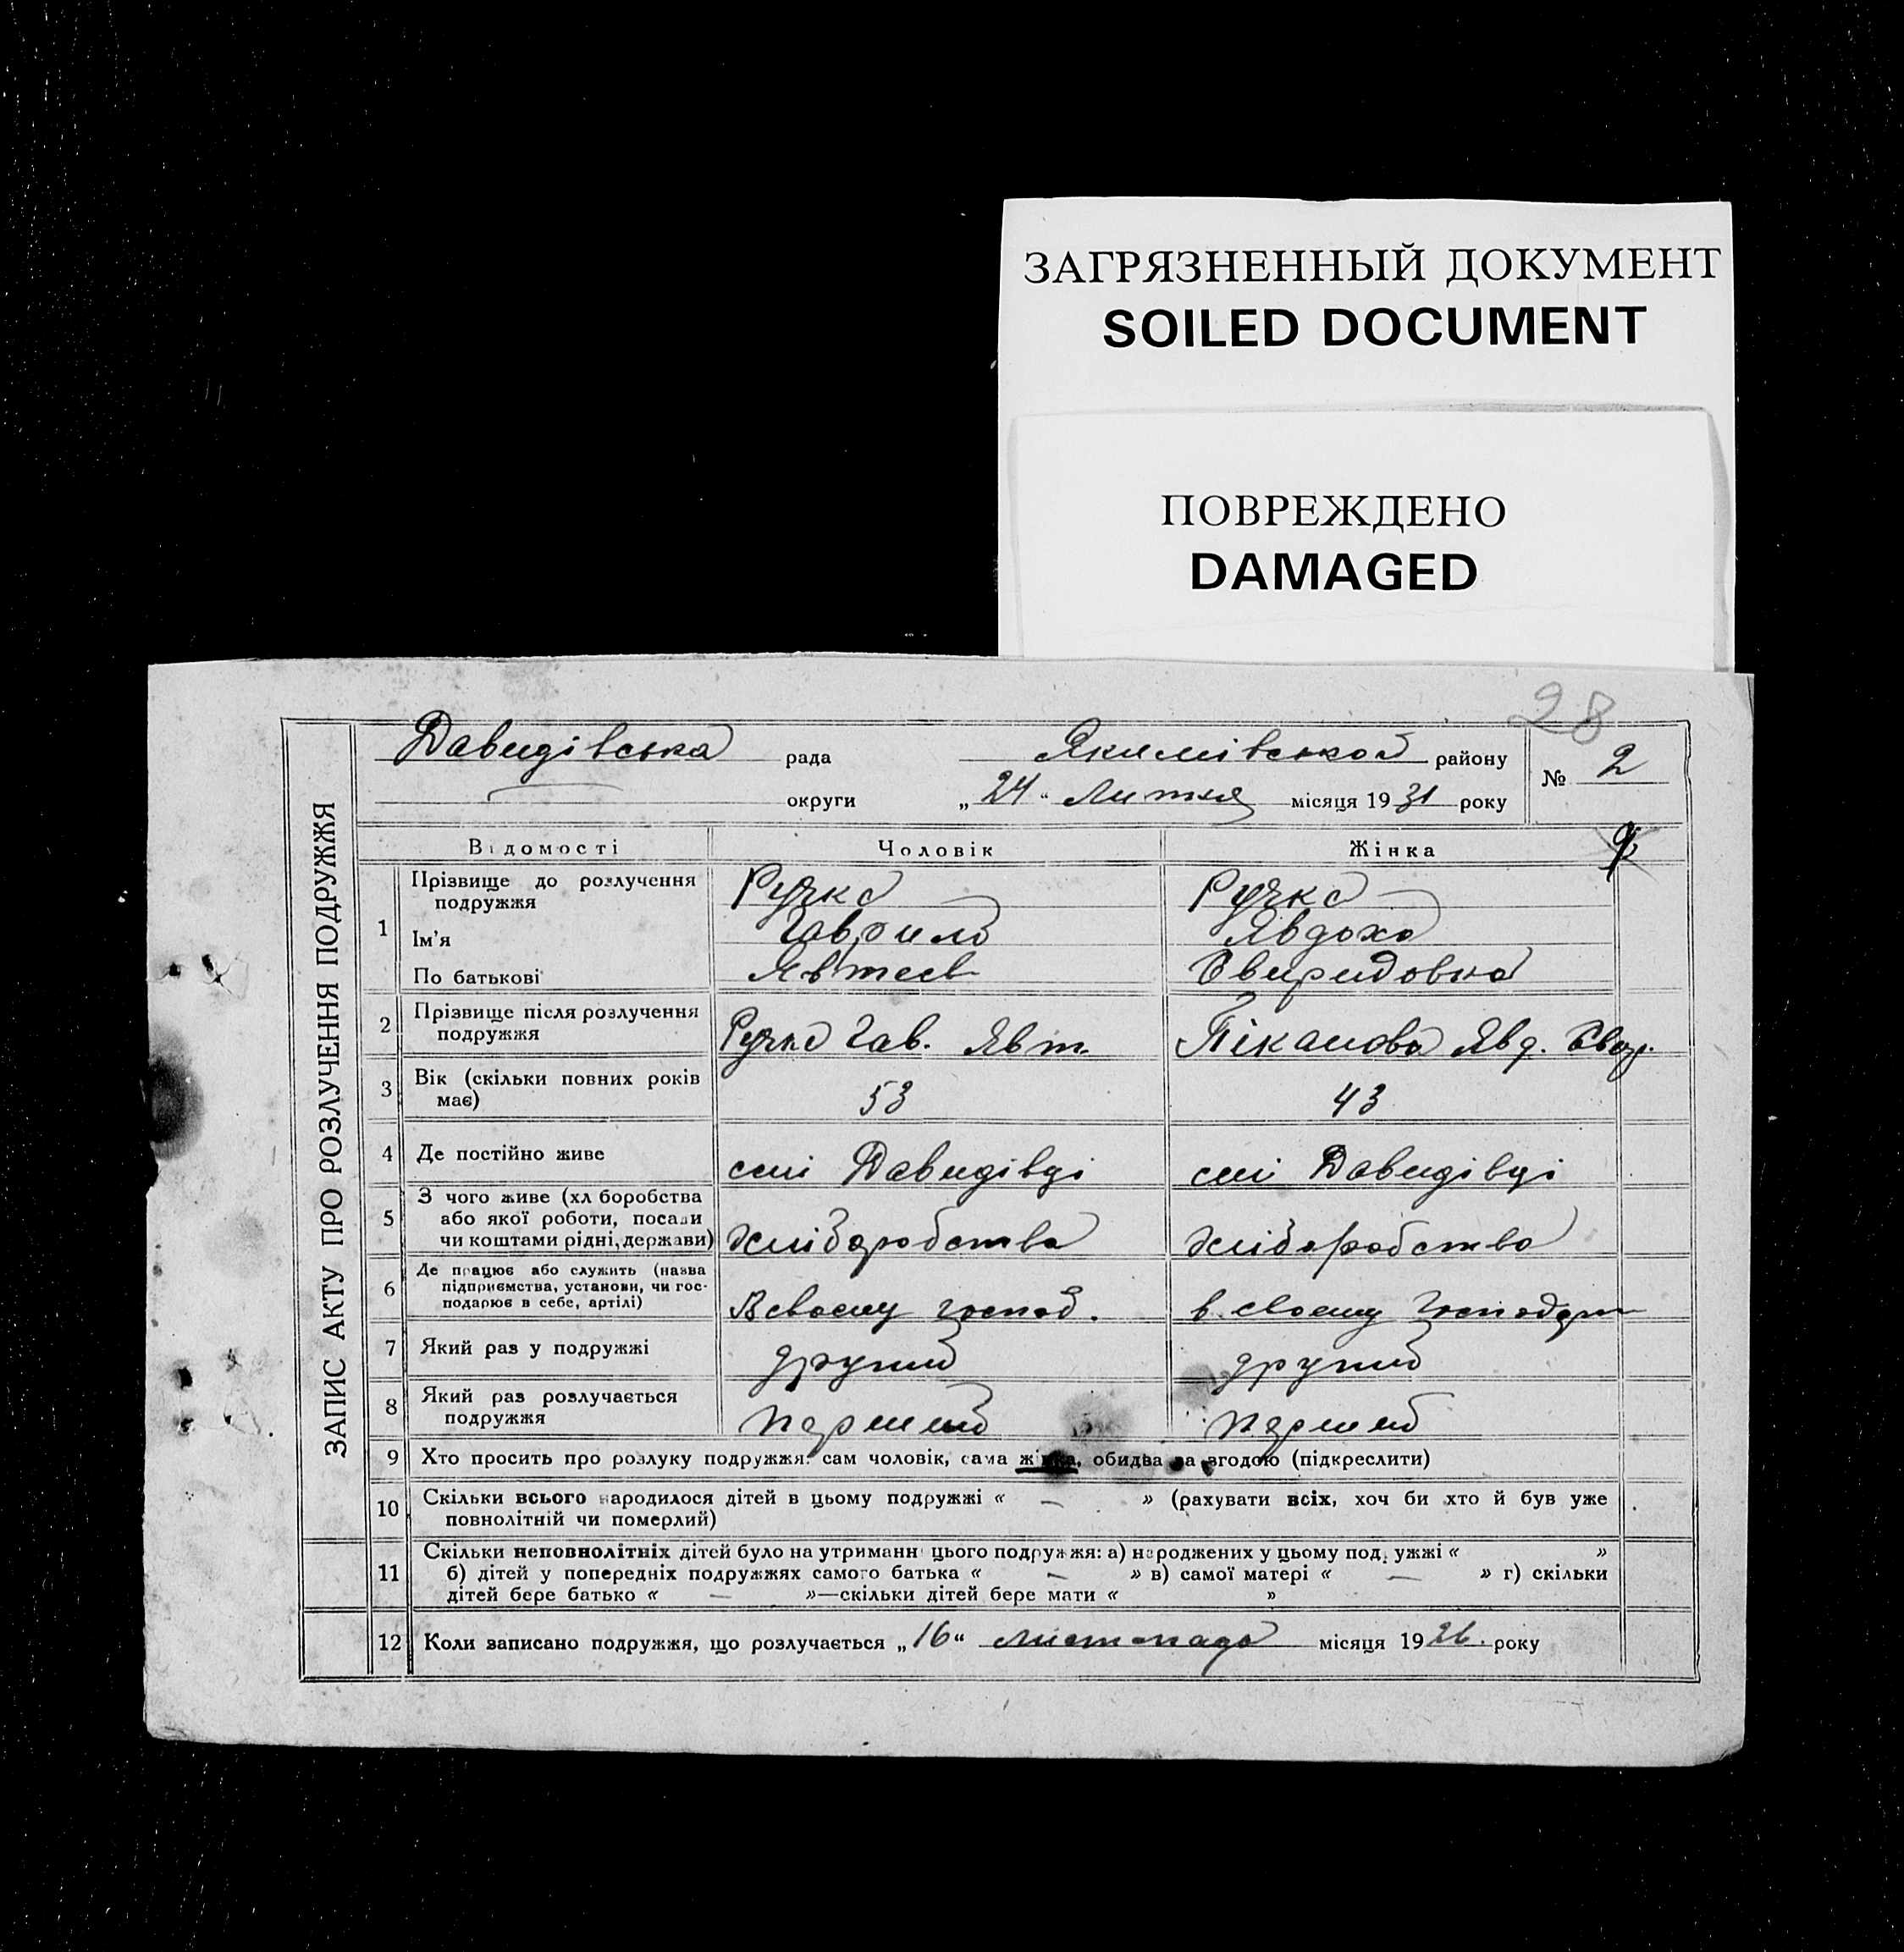 ЗАГРЯЗНЕННЫЙ ДОКУМЕНТ
SOILED DOCUMENT
ПОВРЕЖДЕНО
DAMAGED
28
ЗАПИС АКТУ ПРО РОЗЛУЧЕННЯ ПОДРУЖЖЯ
Давидівська рада Якимівської району № 2
округи „24“ Лютня місяця 1931 року
Відомості Чоловік Жінка
1 Прізвище до розлучення подружжя Ручка Ручка
Ім'я Гаврило Явдоха
По батькові Явтеєв Свиридовна
2 Прізвище після розлучення подружжя Ручка Гав. Явт. Явд. Свир.
3 Вік (скільки повних років має) 53 43
4 Де постійно живе селі Давидівці селі Давидівці
5 З чого живе (хл боробства або якої роботи, посади чи коштами рідні, держави) Хліборобства Хліборобство
6 Де працює або служить (назва підприємства, установи, чи господарює в себе, артілі) В своєму господ. в своєму Господар
7 Який раз у подружжі другий другий
8 Який раз розлучається подружжя перший перший
9 Хто просить про розлуку подружжя: сам чоловік, сама жінка, обидва за згодою (підкреслити)
10 Скільки всього народилося дітей в цьому подружжі « — » (рахувати всіх, хоч би хто й був уже
повнолітній чи померлий)
11 Скільки неповнолітніх дітей було на утриманн цього подружжя: а) народжених у цьому подружжі « »
б) дітей у попередніх подружжях самого батька « — » в) самої матері « — » г) скільки
дітей бере батько « — »—скільки дітей бере мати « »
12 Коли записано подружжя, що розлучається „16“ листопада місяця 1926. року